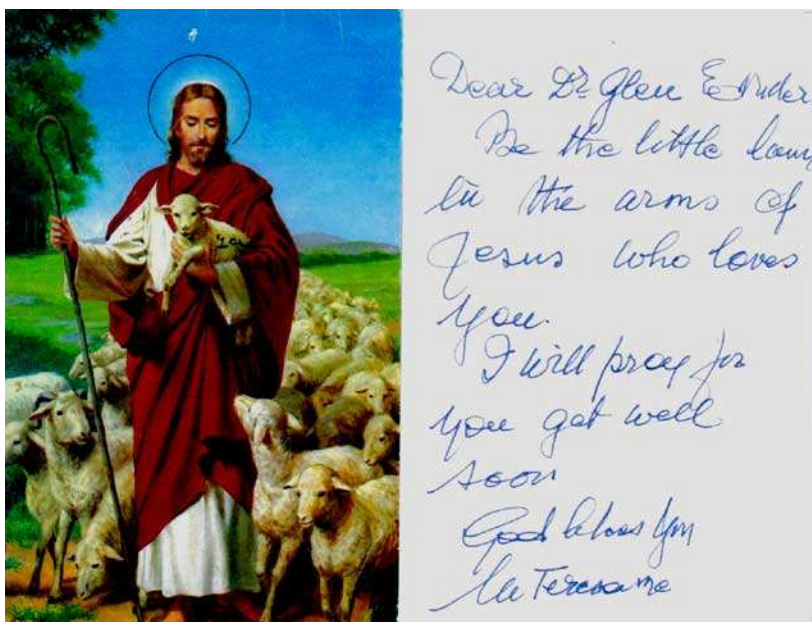 You
Dear Dr Glen E Ander
Be the little lam
in the arms of
Jesus who loves
you.
I will pray for
you get well
soon
God bless you
M Teresa mc